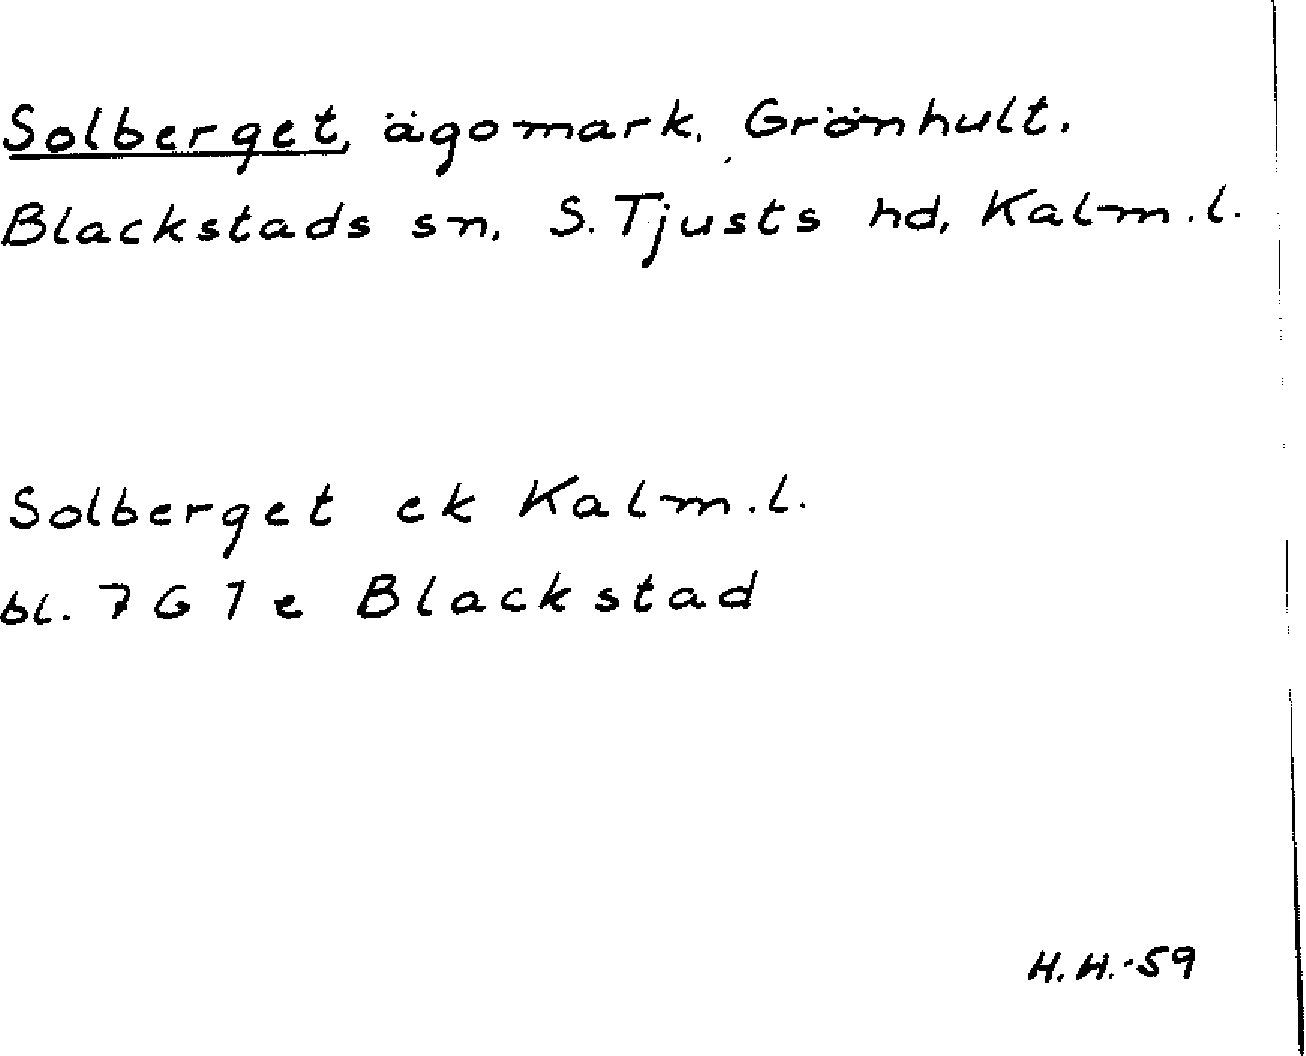 Solberget, ägomark, Grönhult.
Blackstads sn, S. Tjusts hd, Kalm.l.
Solberget ek Kalm.l.
bl. 7G 7e Blackstad
H.H.-59